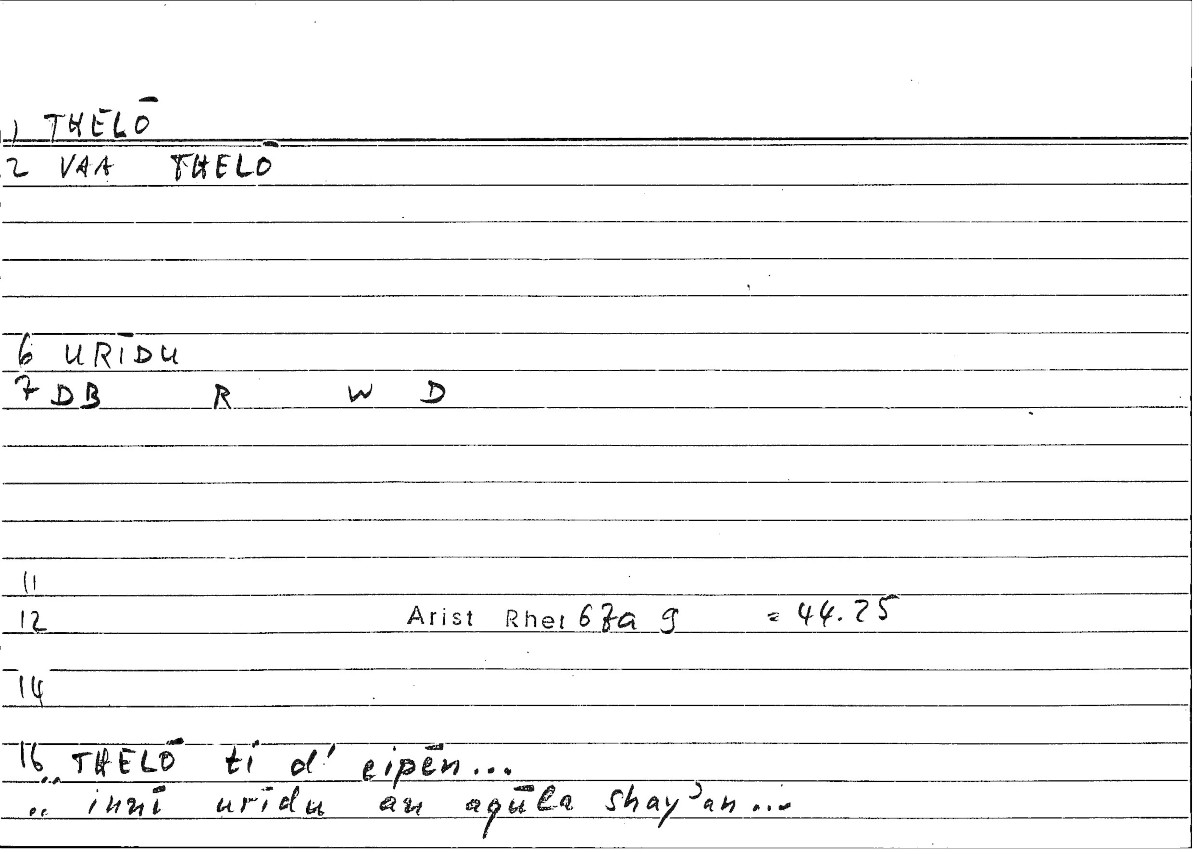 1) THĒLŌ
2 VAA THELŌ
6 URĪDU
7 DB R W D
11
12 Arist Rhet 67a 9 = 44.25
14
16 THELŌ ti d' eipēn...
.. innī urīdu an aqūla shay'an...